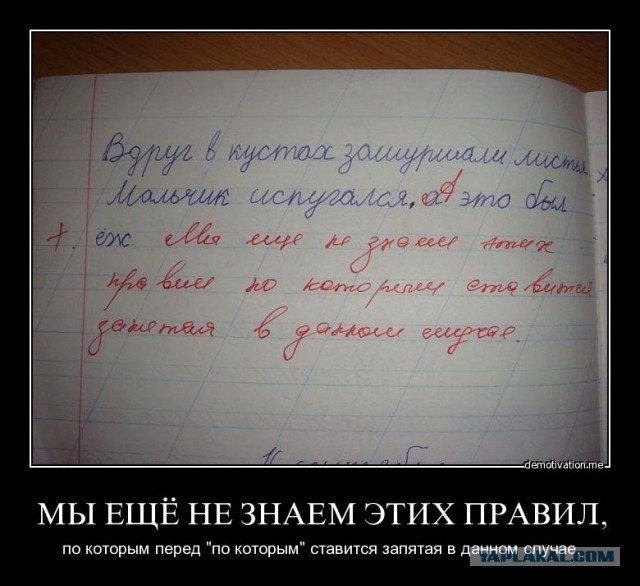 Вдруг в кустах зашуршали листья
Мальчик испугался. А это был
ёж. Мы еще не знаем этих
правил по которым ставится
запетая в данном случае.
demotivation.me
МЫ ЕЩЁ НЕ ЗНАЕМ ЭТИХ ПРАВИЛ,
по которым перед "по которым" ставится запятая в данном случае
YAPLAKAL.COM